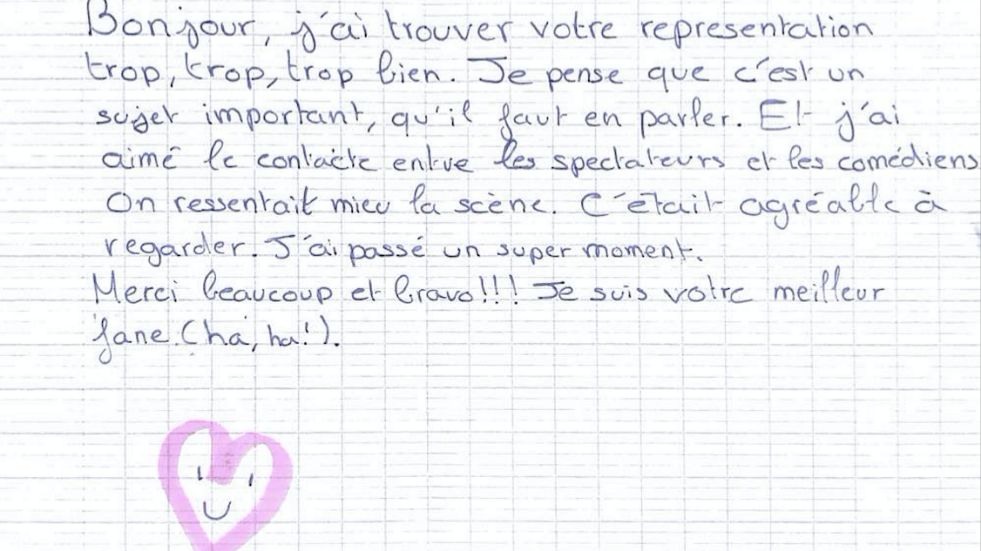 Bonjour, j'ai trouver votre representation
trop, trop, trop bien. Je pense que c'est un
sujet important, qu'il faut en parler. Et j'ai
aimé le contacte entre les spectateurs et les comédiens
On ressentait mieu la scène. C'était agréable à
regarder. J'ai passé un super moment.
Merci beaucoup et bravo!!! Je suis votre meilleur
fane. (ha, ha!).